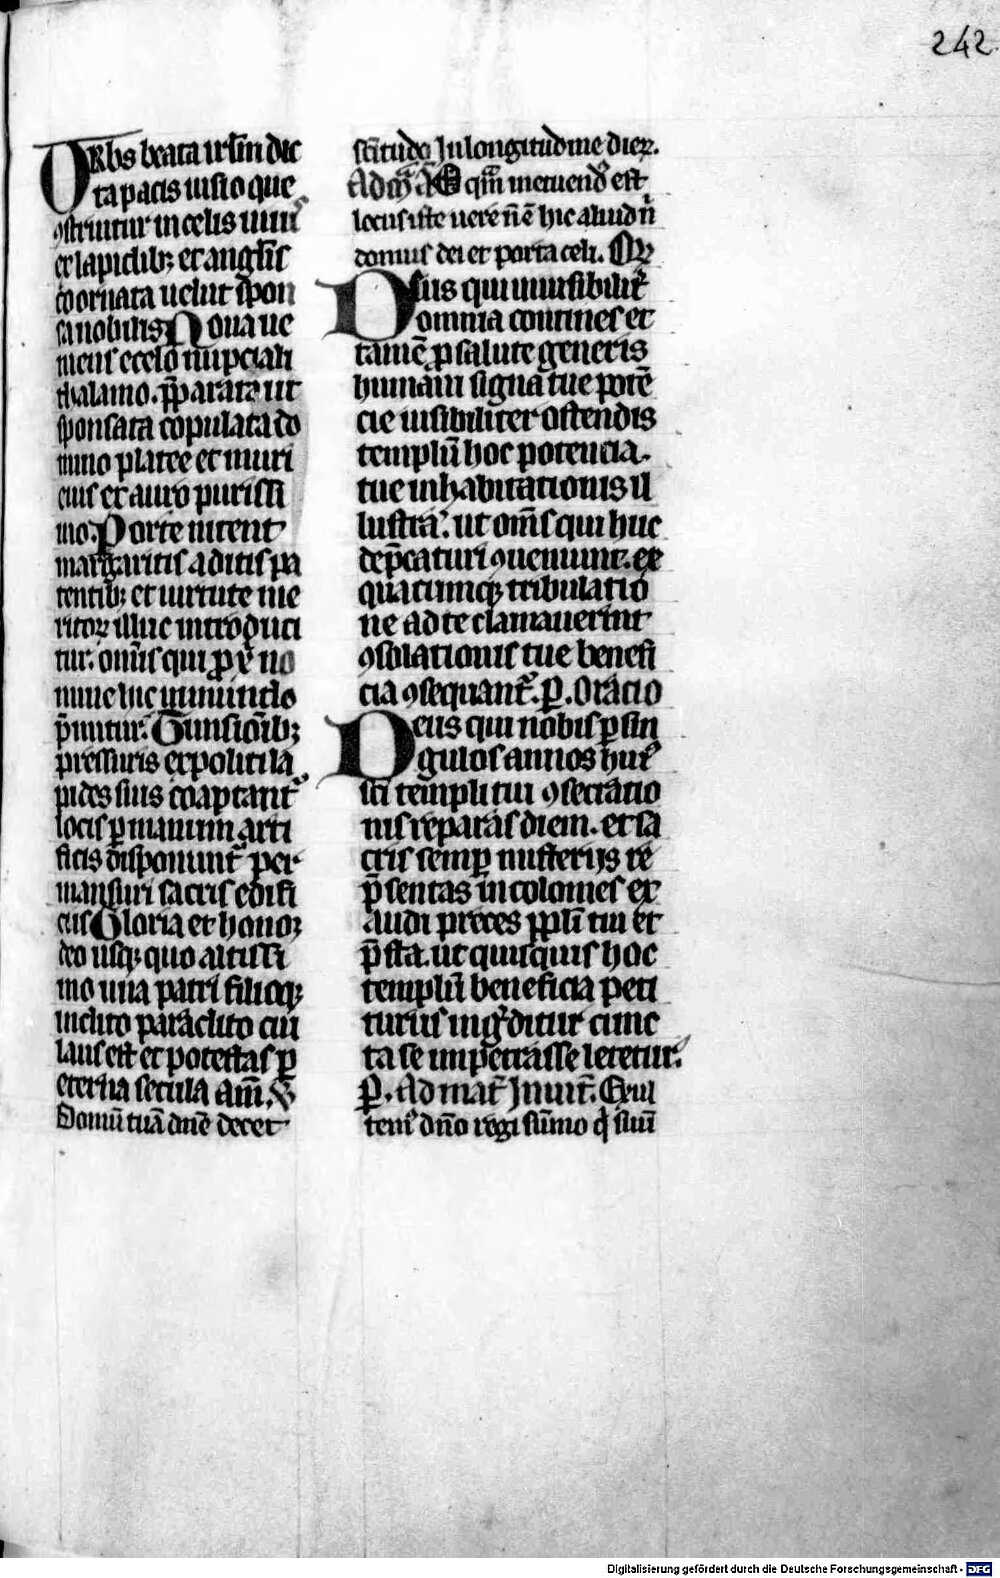 242
Urbs beata irl̅m dic
ta pacis uisio que
ꝯstruitur in celis uiuis
ex lapidibꝫ et angl̅is
coornata uelut spon
sa nobilis Noua ue
niens e celo nupciali
thalamo. p̅parata ut
sponsata copulata do
mino platee et muri
eius ex auro purissi
mo. Porte nitent
margaritis aditis pa
tentibꝫ et uirtute me
ritoꝝ illuc introduci
tur. om̅is qui ꝓ xp̅i no
mine hic in mundo
p̅mitur. Tunsioıb̅ꝫ
pressuris expoliti la
pides suis coaptant᷑
locis ꝑ manum arti
ficis disponunt᷑ per
mansuri sacris edifi
ciis Gloria et honoꝛ
deo usqꝫ quo altissi
mo una patri filioqꝫ
inclito paraclito cui
laus est et potestas ꝑ
eterna secula am̅. V̸
Domu̅ tua̅ dn̅e decet
sc̅itudo In longitudine dieꝝ.
Ad mͣ aͣ O qͣm metuend᷒ est
locus iste uere n̅ e̅ hic aliud n̅
domus dei et porta celi. Or̅
Deus qui inuisibilit᷑
omnia contines et
tame̅ ꝓ salute generis
humani signa tue pote̅
cie uisibiliter ostendis
templu̅ hoc potencia
tue inhabitationis il
lustra. ut om̅s qui huc
dep̅caturi ꝯueniunt. ex
quacumqꝫ tribulatio
ne ad te clamauerint
ꝯsolationis tue benefi
cia ꝯsequant᷑. ꝑ. Oracio
Deus qui nobis ꝑ sin
gulos annos hui᷒
sc̅i templi tui ꝯsecratio
nis reparas diem. et sa
cris semꝑ misterijs re
p̅sentas incolomes ex
audi preces ppl̅i tui et
p̅sta. ut quisquis hoc
templu̅ beneficia peti
turus ing̾ditur cunc
ta se impetrasse letetur.
ꝑ. Ad mat᷑ Inuit᷑. Exul
tem᷒ dn̅o regi su̅mo q̇ suu̅
Digitalisierung gefördert durch die Deutsche Forschungsgemeinschaft - DFG